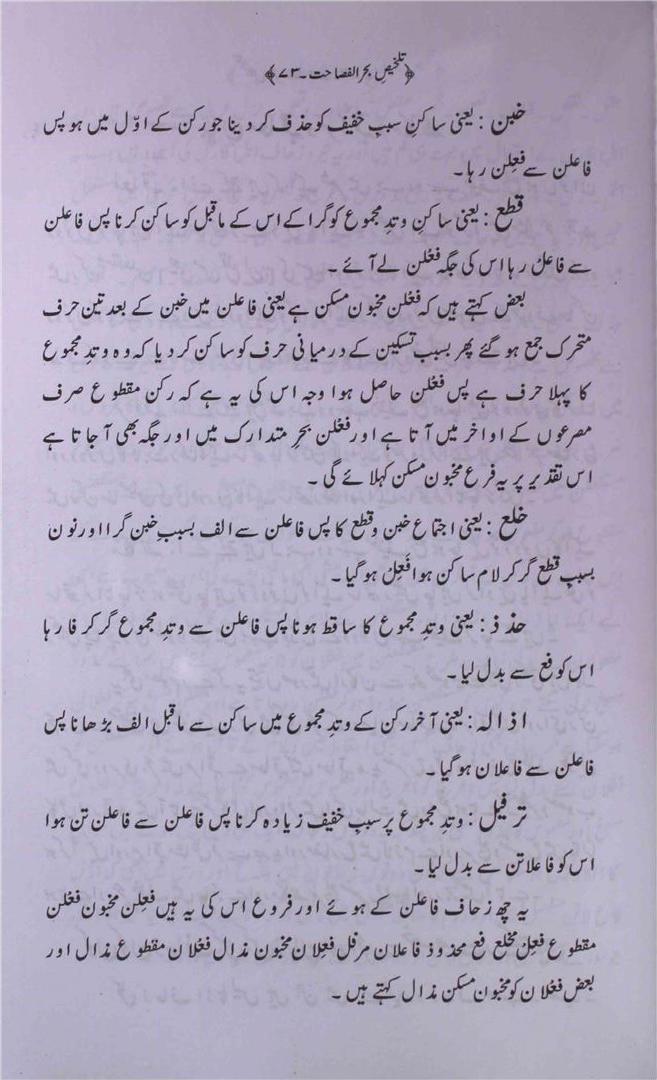 ﴿تلخیصِ بحر الفصاحت۔۷۳﴾
خبن : یعنی ساکنِ سببِ خفیف کو حذف کر دینا جو رکن کے اوّل میں ہو پس
فاعلن سے فعِلن رہا۔
قطع : یعنی ساکنِ وتدِ مجموع کو گرا کے اس کے ماقبل کو ساکن کرنا پس فاعلن
سے فاعلْ رہا اس کی جگہ فعْلن لے آئے۔
بعض کہتے ہیں کہ فعْلن مخبون مسکن ہے یعنی فاعلن میں خبن کے بعد تین حرف
متحرک جمع ہو گئے پھر بسبب تسکین کے درمیانی حرف کو ساکن کر دیا کہ وہ وتدِ مجموع
کا پہلا حرف ہے پس فعْلن حاصل ہوا وجہ اس کی یہ ہے کہ رکن مقطوع صرف
مصرعوں کے اواخر میں آتا ہے اور فعْلن بحرِ متدارک میں اور جگہ بھی آجاتا ہے
اس تقدیر پر یہ فرع مخبون مسکن کہلائے گی۔
خلع : یعنی اجتماع خبن و قطع کا پس فاعلن سے الف بسببِ خبن گرا اور نون
بسببِ قطع گر کر لام ساکن ہوا فَعِلْ ہو گیا۔
حذذ : یعنی وتدِ مجموع کا ساقط ہونا پس فاعلن سے وتدِ مجموع گر کر فا رہا
اس کو فع سے بدل لیا۔
اذالہ : یعنی آخر رکن کے وتدِ مجموع میں ساکن سے ماقبل الف بڑھانا پس
فاعلن سے فاعلان ہو گیا۔
ترفیل : وتدِ مجموع پر سببِ خفیف زیادہ کرنا پس فاعلن سے فاعلن تن ہوا
اس کو فاعلاتن سے بدل لیا۔
یہ چھ زحاف فاعلن کے ہوئے اور فروع اس کی یہ ہیں فعِلن مخبون فعْلن
مقطوع فعِلْ مخلع فع محذوذ فاعلان مرفل فعِلان مخبون مذال فعْلان مقطوع مذال اور
بعض فعْلان کو مخبون مسکن مذال کہتے ہیں۔